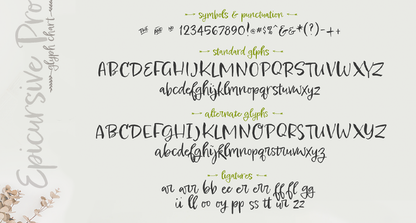 Epicursive Pro
glyph chart
symbols & punctuation
the for of 1234567890!@#$%^&&*(?)-++
standard glphs
ABCDEFGHIJKLMNOPQRSTUVWXYZ
abcdefghijklmnopqrstuvwxyz
alternate glyphs
ABCDEFGHIJKLMNOPQRSTUVWXYZ
abcdefghijklmnopqrstuvwxyz
ligatures
ar arr bb ee er err ff fl gg
ii ll oo oy pp ss tt ur zz